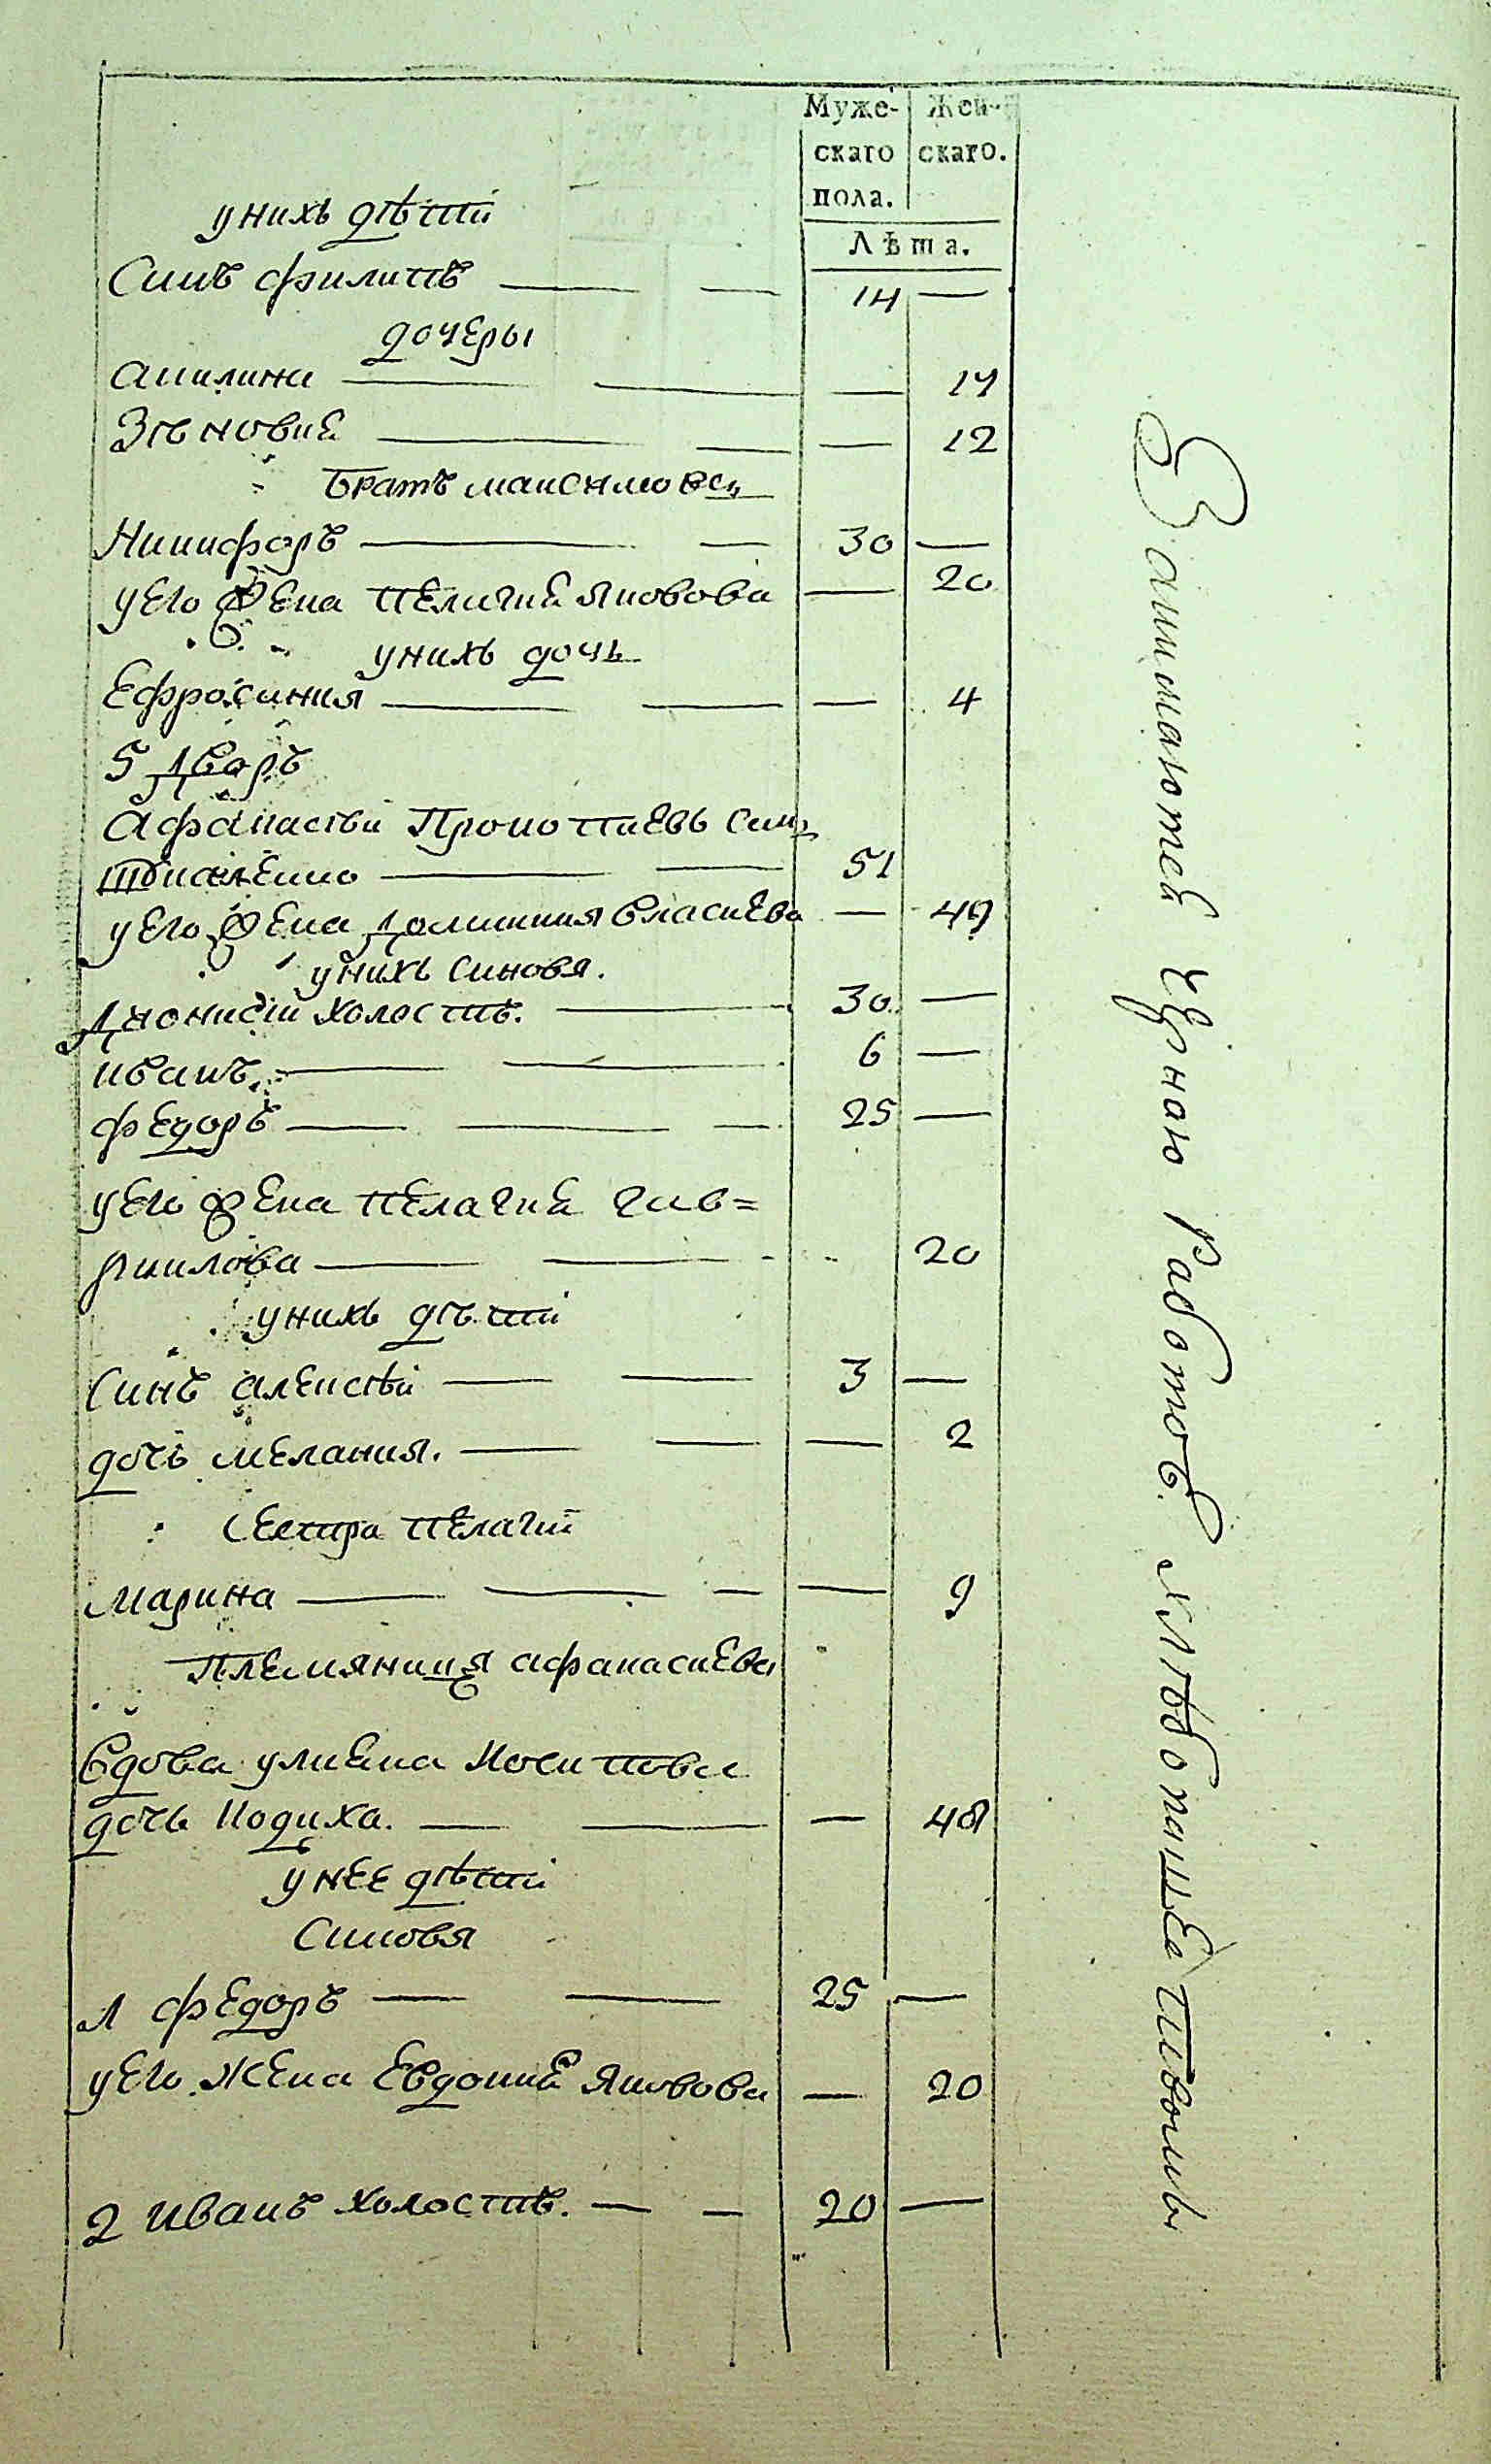 Муже-
скаго
пола.
Жен-
скаго.
Лѣта.
унихъ дѣти
Синъ филипъ — — 14 —
дочеры
акилина — — — 14
Зѣновия — — — 12
братъ максимовъ
Никифоръ — — 30 —
уего жена пелагия яковова — 20
унихъ дочь
Ефросиния — — — 4
5 Дворъ
Афанасѣй Прокопиевъ Синъ
— — 51
уего жена Домникия власиева — 49
унихъ Синовя.
Дионисий холостъ. — 30 —
иванъ. — — 6 —
федоръ — — — 25 —
уего жена пелагия гав=
риилова — — 20
унихъ дѣти
Синъ алексѣй — — 3 —
дочь мелания. — — — 2
Сестра пелагии
Марина — — — — 9
Племяница афанасиева
Вдова улиана Иосипова
дочь Кодиха. — — — 48
унее дѣти
Синовя
1 федоръ — — 25 —
уего жена Евдокия яковова — 20
2 иванъ холостъ. — — 20 —
Занимаютея чорною работою. хлѣбопашествомъ